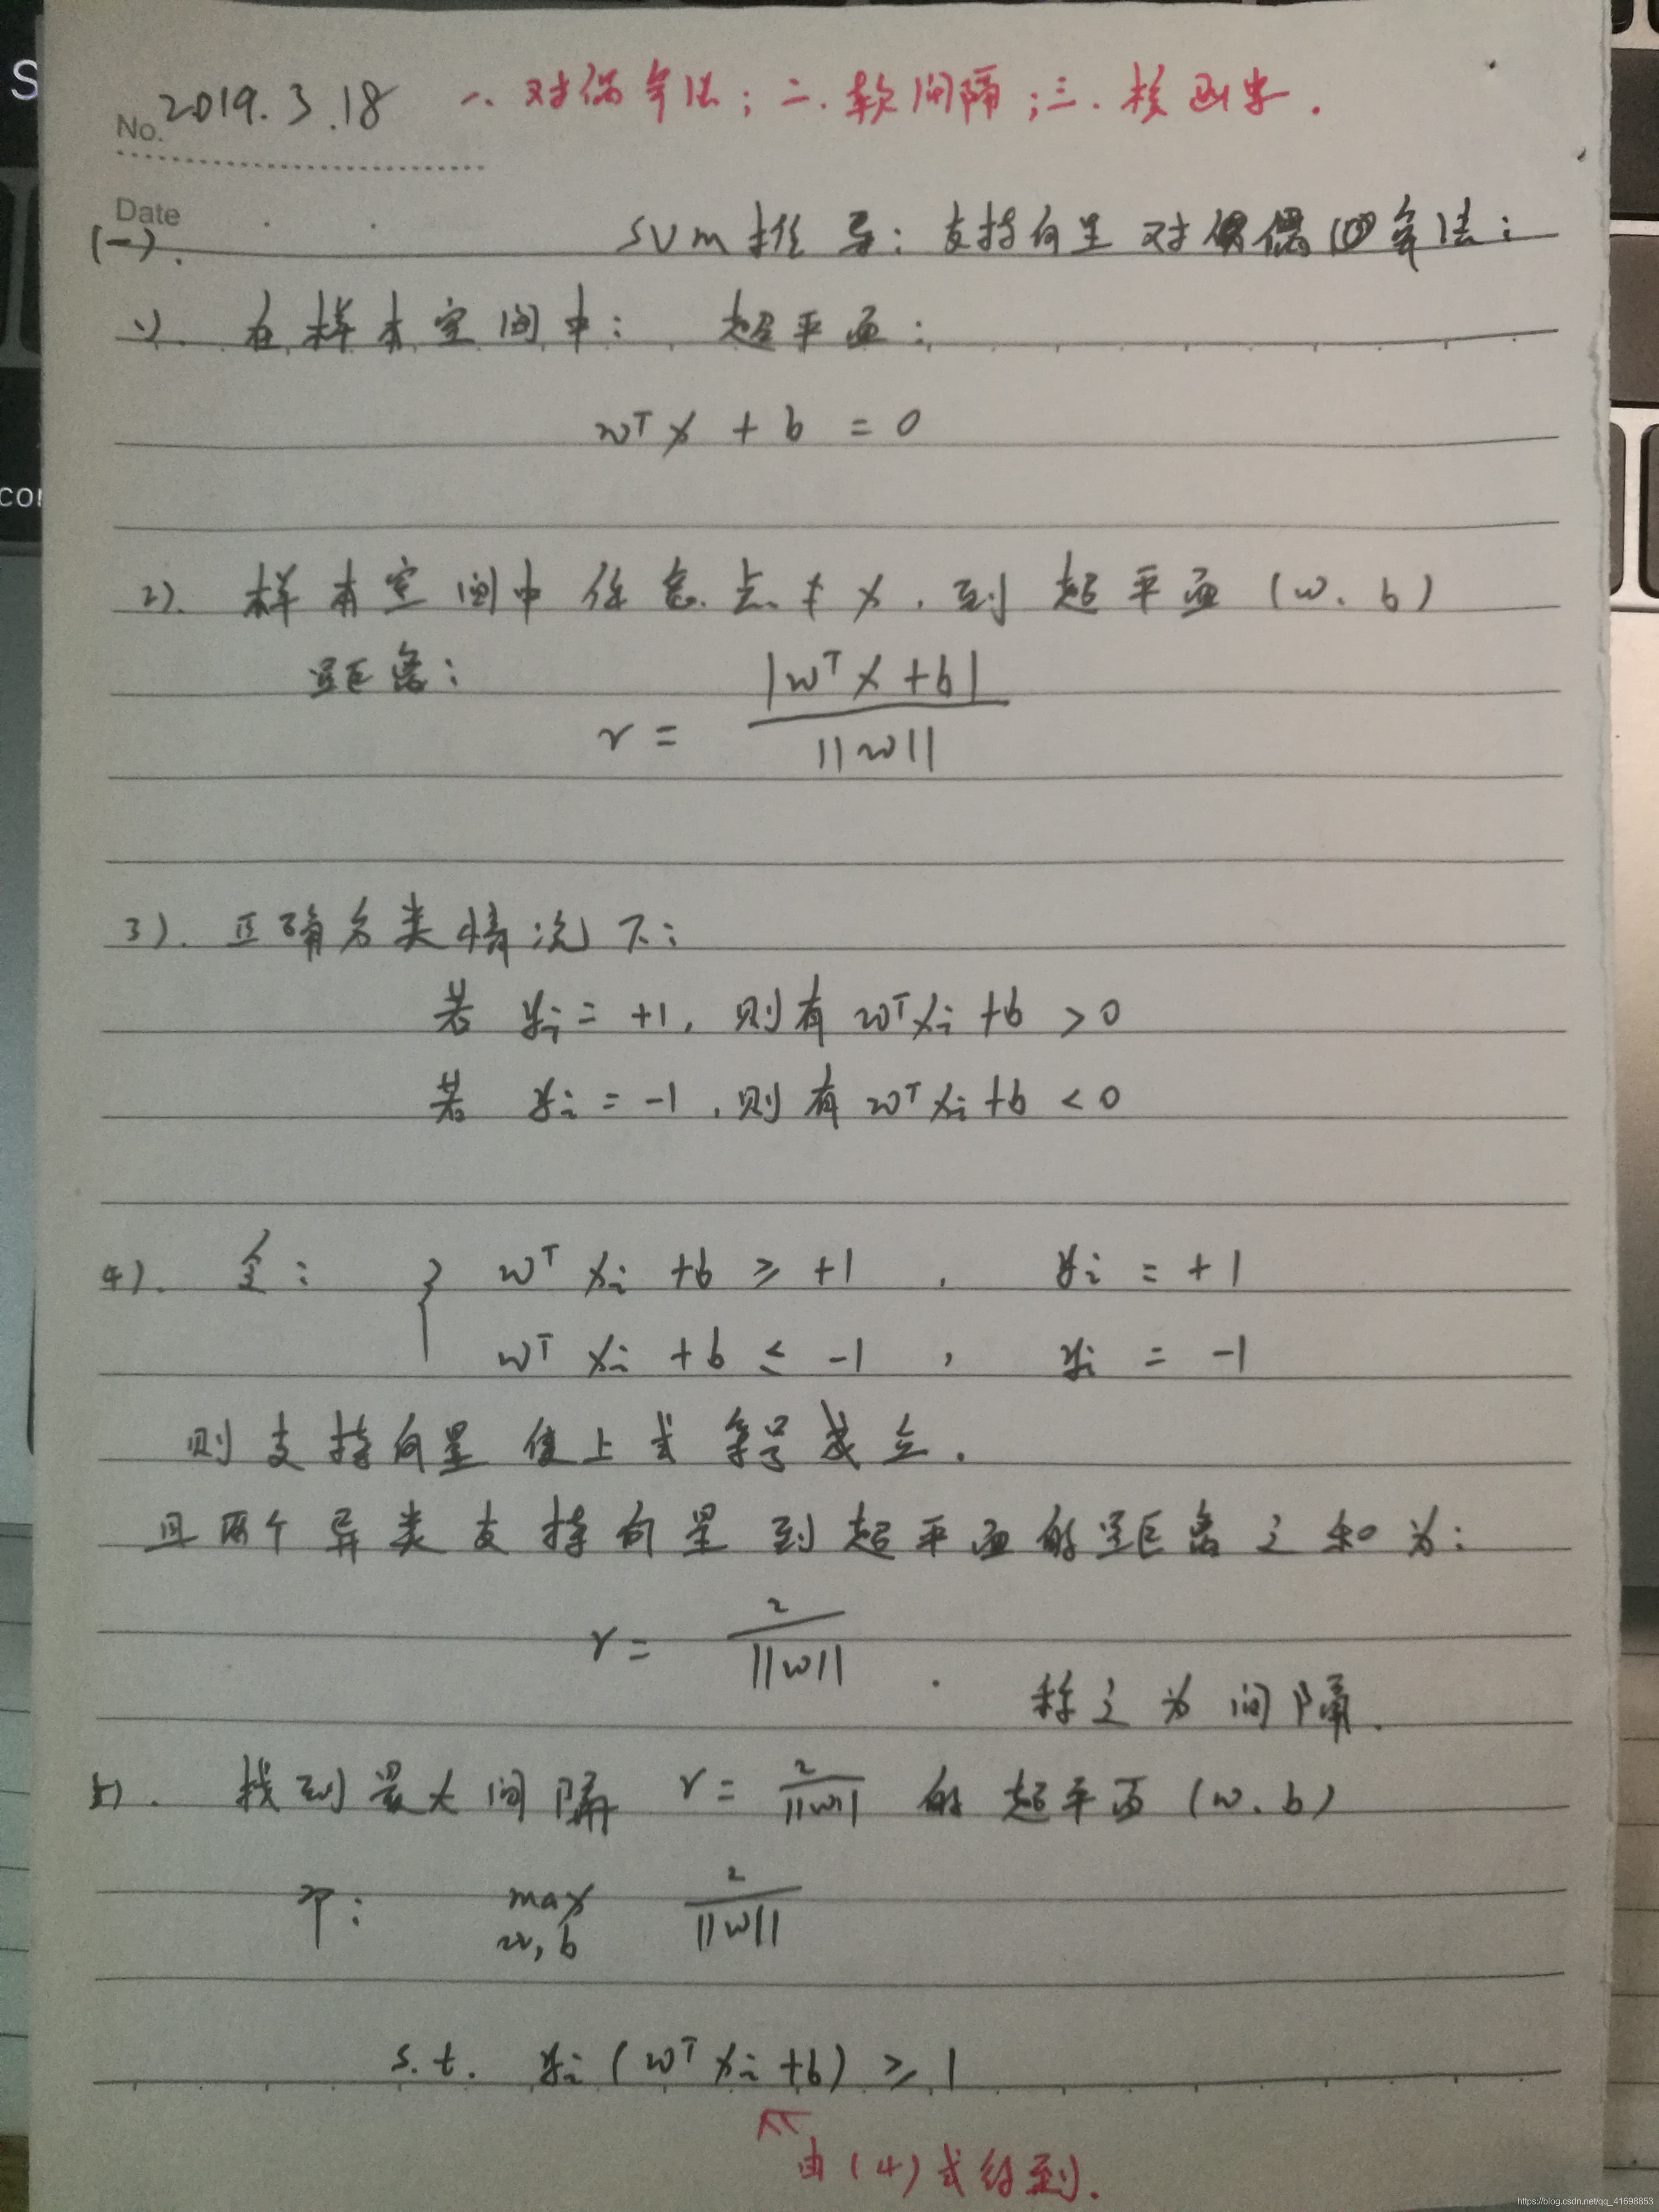 2019.3.18 一.对偶算法;二.软间隔;三.核函数.
No.
Date
(一). SVM推导:支持向量 对偶算法:
1). 在样本空间中: 超平面:
wᵀx + b = 0
2). 样本空间中任意点 x,到超平面(w、b)
距离:
r = |wᵀx+b| / ||w||
3). 正确分类情况下:
若 yᵢ = +1, 则有 wᵀxᵢ+b > 0
若 yᵢ = -1, 则有 wᵀxᵢ+b < 0
4). 令: { wᵀxᵢ + b ≥ +1 , yᵢ = +1
wᵀxᵢ + b ≤ -1 , yᵢ = -1
则支持向量使上式等号成立.
且两个异类支持向量到超平面的距离之和为:
r = 2 / ||w|| .
称之为间隔.
5). 找到最大间隔 r = 2 / ||w|| 的超平面(w、b)
即: max w,b 2 / ||w||
s.t. yᵢ(wᵀxᵢ+b) ≥ 1
由(4)式得到.
S
co
https://blog.csdn.net/qq_41698853